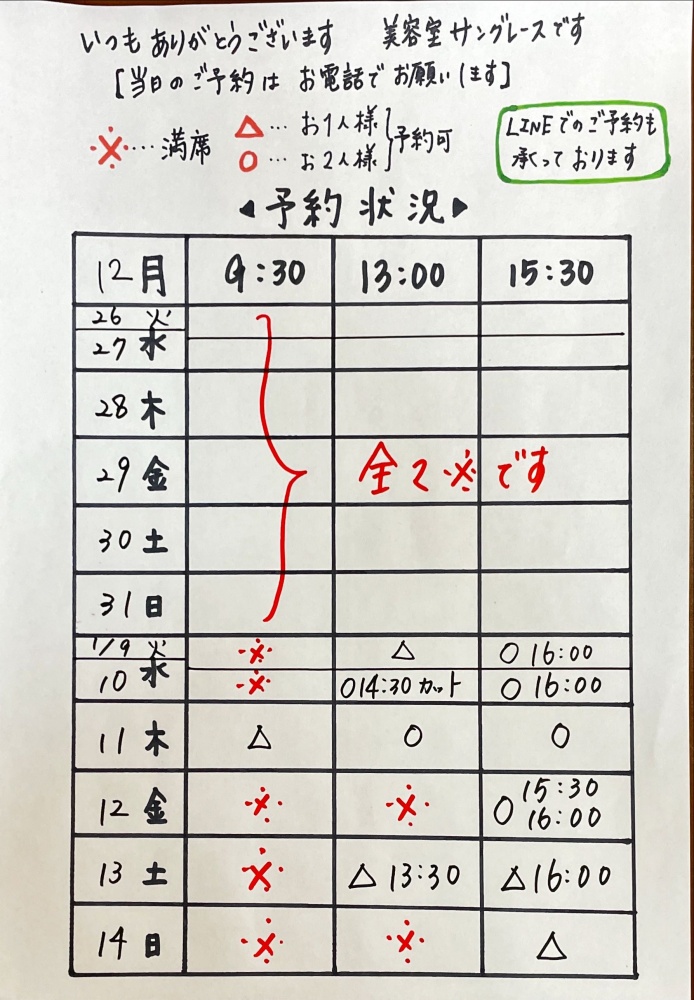 いつもありがとうございます 美容室サングレースです
[当日のご予約は お電話でお願いします]
※…満席
△…お1人様
○…お2人様
予約可
LINEでのご予約も
承っております
◀予約状況▶
12月 9:30 13:00 15:30
26 火
27 水
28 木
29 金 全て※です
30 土
31 日
1/9 火 ※ △ ○16:00
10 水 ※ ○14:30カット ○16:00
11 木 △ ○ ○
12 金 ※ ※ ○15:30
16:00
13 土 ※ △13:30 △16:00
14 日 ※ ※ △